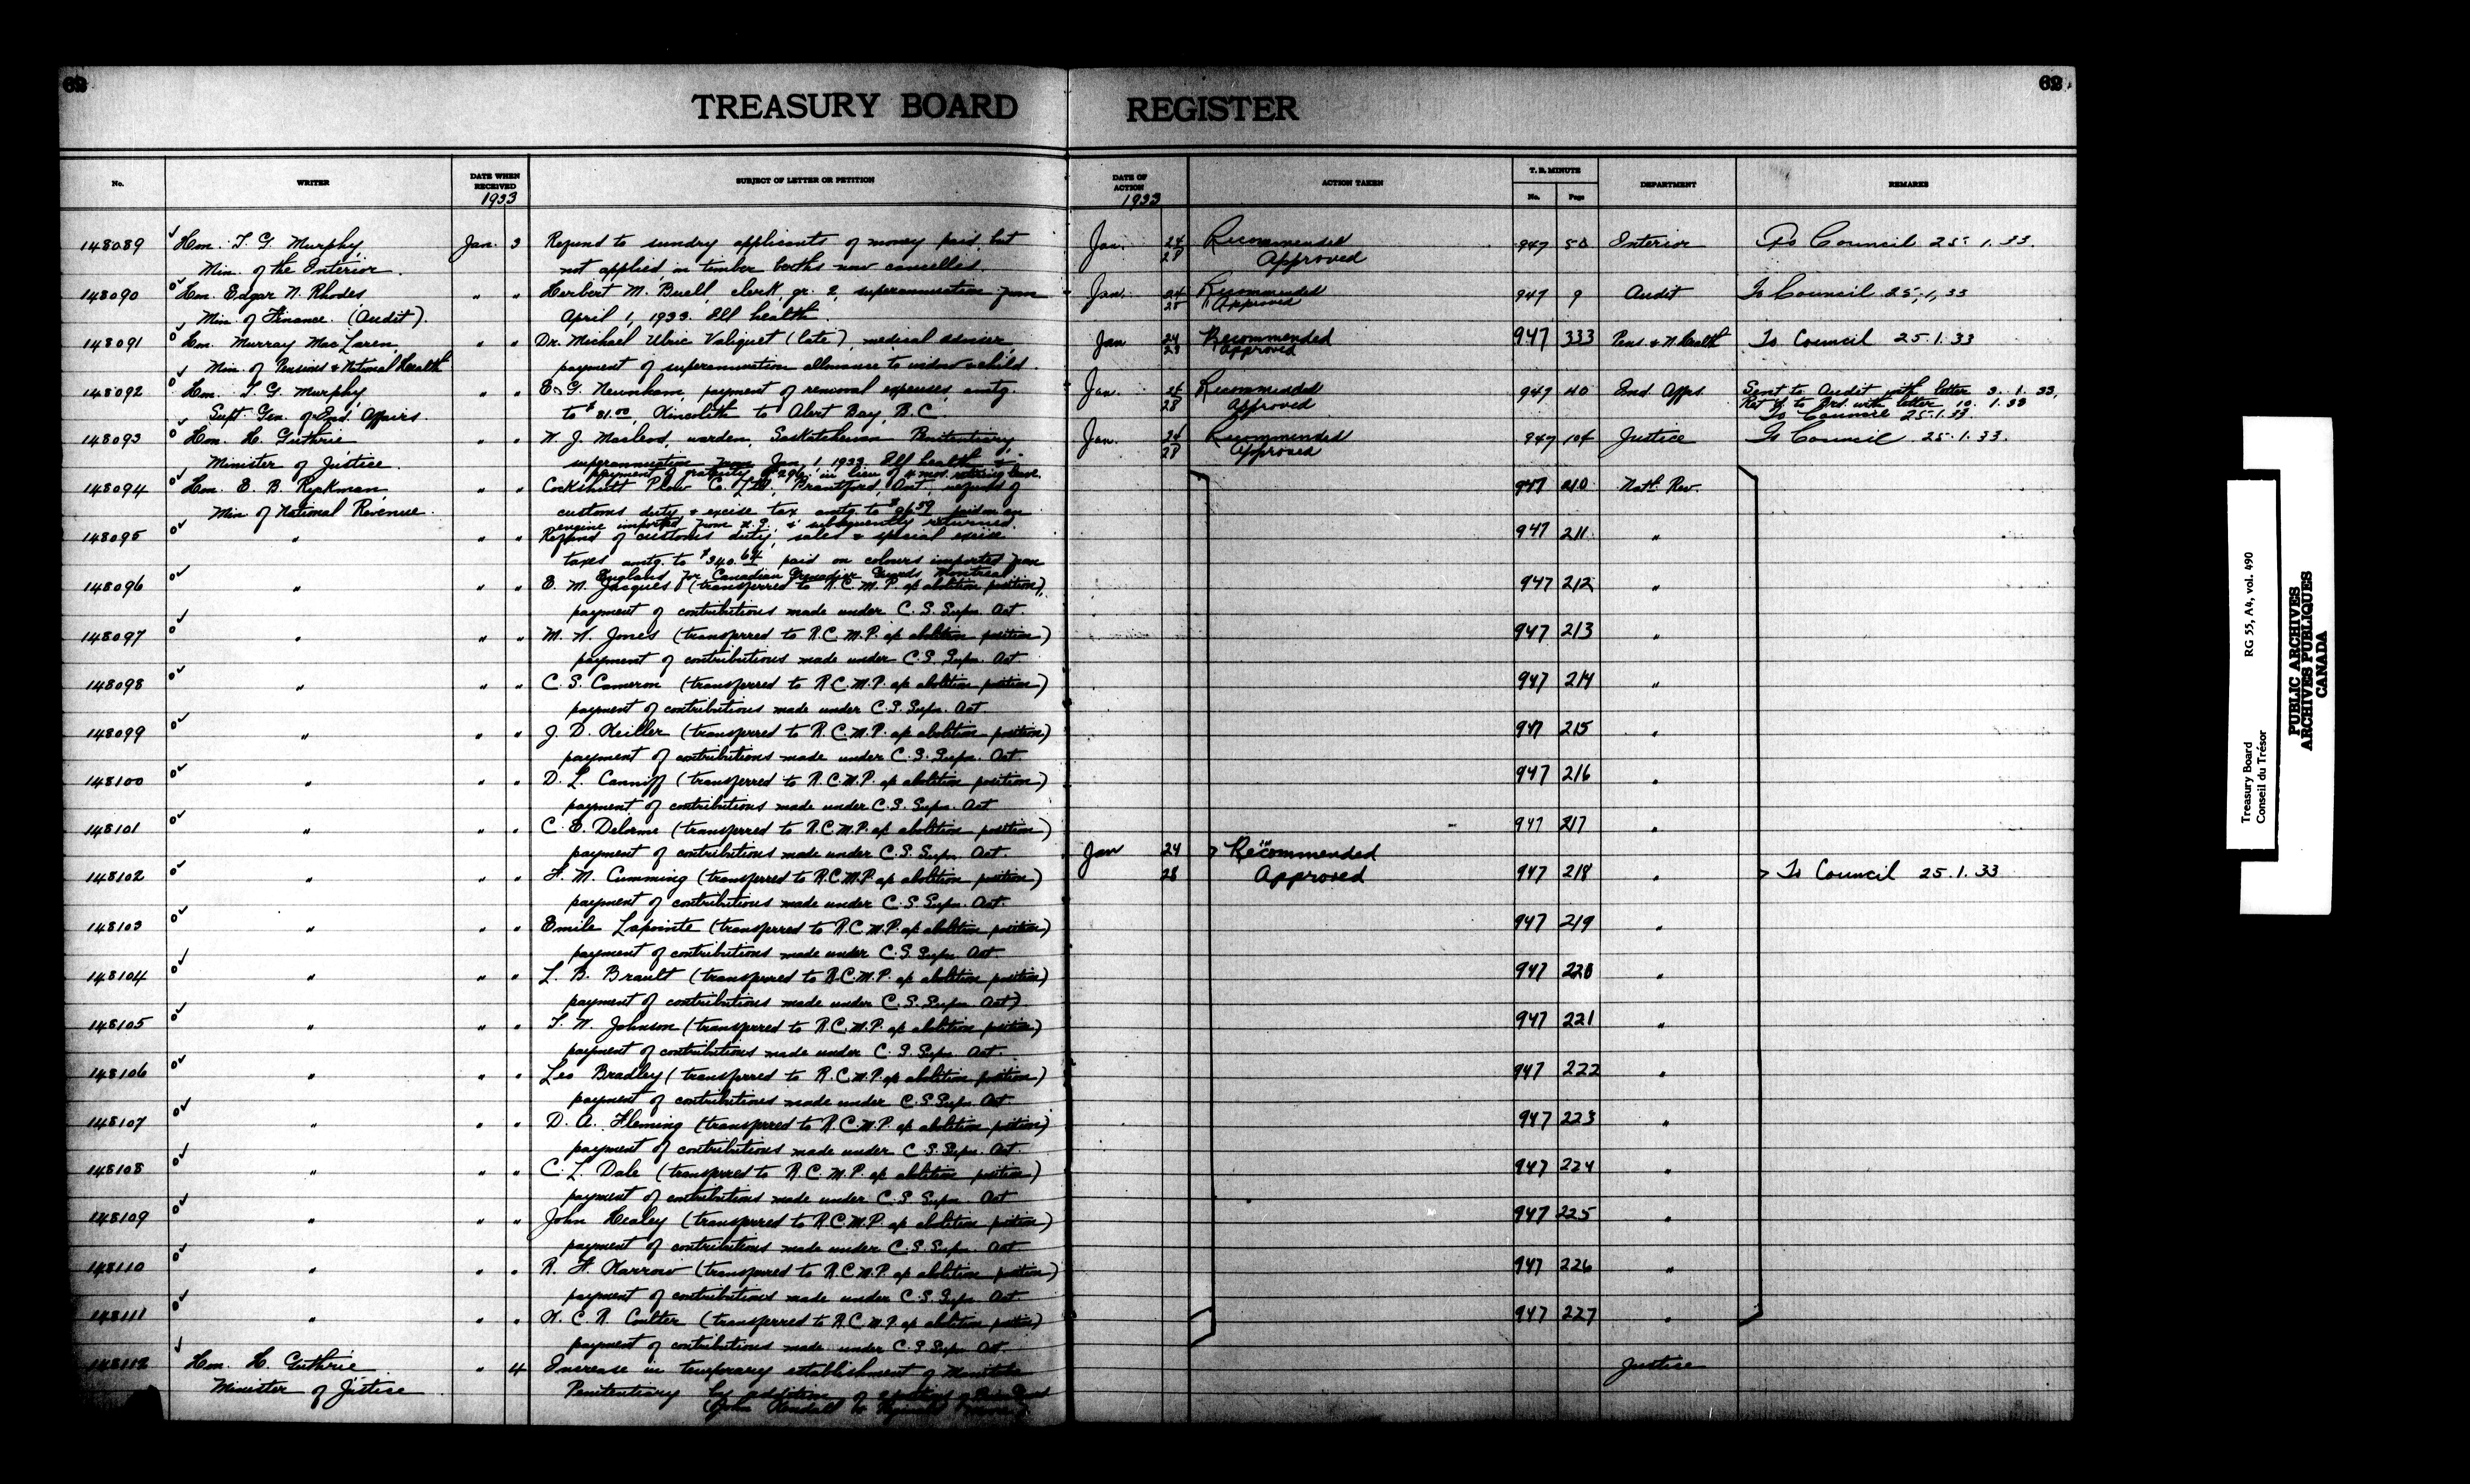 62
62
TREASURY BOARD REGISTER
No. WRITER DATE WHEN RECEIVED 1933 SUBJECT OF LETTER OR PETITION DATE OF ACTION 1933 ACTION TAKEN T. B. MINUTE No. Page DEPARTMENT REMARKS
148089 Hon. T. G. Murphy, Jan. 3 Refund to sundry applicants of money paid, but Jan. 24 Recommended 947 50 Interior To Council 25.1.33.
Min. of the Interior. not applied, in timber berths now cancelled. 28 Approved
148090 Hon. Edgar N. Rhodes, " " Herbert M. Buell, clerk, gr. 2, superannuation from Jan. 24 Recommended 947 9 Audit To Council 25,1,33
Min. of Finance. (Audit). April 1, 1933. Ill health. 28 Approved
148091 Hon. Murray MacLaren, " " Dr. Michael Ulric Valiquet (late), medical adviser, Jan 24 Recommended 947 333 Pens. & N. Health To Council 25.1.33
Min. of Pensions & National Health payment of superannuation allowance to widow & child. 28 Approved
148092 Hon. T. G. Murphy, " " E. G. Newnham, payment of removal expenses, amtg. Jan. 24 Recommended 947 40 Ind. Affrs. Sent to Audit with letter 3.1.33,
Supt. Gen. of Ind. Affairs. to $81.00, Kincolith to Alert Bay, B.C. 28 Approved with letter 10.1.33
To Council 25.1.33.
148093 Hon. H. Guthrie " " W. J. Macleod, warden, Saskatchewan Penitentiary, Jan. 24 Recommended 947 104 Justice To Council 25.1.33.
Minister of Justice. superannuation from Jan. 1 1933 Ill health & 28 Approved
payment of gratuity of in lieu of 4 mos. retiring leave.
148094 Hon. E. B. Ryckman, " " Cockshutt Plow Co. Ltd., Brantford, Ont., refund of 947 210 Natl. Rev.
Min. of National Revenue. customs duty & excise tax amtg. to paid on an
engine imported from & subsequently returned.
148095 " " " Refund of customs duty, sales & special excise 947 211 "
taxes amtg. to $340.64, paid on colours imported from
England for Canadian Grenadier Guards Montreal
148096 " " " E. M. Jacques (transferred to R.C.M.P. a/c abolition position), 947 212 "
payment of contributions made under C.S. Supn. Act.
148097 " " " M. W. Jones (transferred to R.C.M.P. a/c abolition position) 947 213 "
payment of contributions made under C.S. Supn. Act.
148098 " " " C. S. Cameron (transferred to R.C.M.P. a/c abolition position) 947 214 "
payment of contributions made under C.S. Supn. Act.
148099 " " " J. D. Keiller (transferred to R.C.M.P. a/c abolition position) 947 215 "
payment of contributions made under C.S. Supn. Act.
148100 " " " D. L. Canniff (transferred to R.C.M.P. a/c abolition position) 947 216 "
payment of contributions made under C.S. Supn. Act
148101 " " " C. E. Delorme (transferred to R.C.M.P. a/c abolition position) 947 217 "
payment of contributions made under C.S. Supn. Act. Jan 24 Recommended
148102 " " " F. M. Cumming (transferred to R.C.M.P. a/c abolition position) 28 Approved 947 218 " To Council 25.1.33
payment of contributions made under C.S. Supn. Act.
148103 " " " Emile Lapointe (transferred to R.C.M.P. a/c abolition position) 947 219 "
payment of contributions made under C.S. Supn. Act.
148104 " " " L. B. Brault (transferred to R.C.M.P. a/c abolition position) 947 220 "
payment of contributions made under C.S. Supn. Act)
148105 " " " T. W. Johnson (transferred to R.C.M.P. a/c abolition position) 947 221 "
payment of contributions made under C.S. Supn. Act.
148106 " " " Leo Bradley (transferred to R.C.M.P. a/c abolition position) 947 222 "
payment of contributions made under C.S. Supn. Act.
148107 " " " D. A. Fleming (transferred to R.C.M.P. a/c abolition position) 947 223 "
payment of contributions made under C.S. Supn. Act.
148108 " " " C. L. Dale (transferred to R.C.M.P. a/c abolition position) 947 224 "
payment of contributions made under C.S. Supn. Act
148109 " " " John Healey (transferred to R.C.M.P. a/c abolition position) 947 225 "
payment of contributions made under C.S. Supn. Act
148110 " " " R. F. Karrow (transferred to R.C.M.P. a/c abolition position) 947 226 "
payment of contributions made under C.S. Supn. Act
148111 " " " W. C. R. Coulter (transferred to R.C.M.P. a/c abolition position) 947 227 "
payment of contributions made under C.S. Supn. Act
148112 Hon. H. Guthrie " 4 Increase in temporary establishment of Manitoba Justice
Minister of Justice Penitentiary by addition of
John Kendall
Treasury Board RG 55, A4, vol. 490
Conseil du Trésor
PUBLIC ARCHIVES
ARCHIVES PUBLIQUES
CANADA